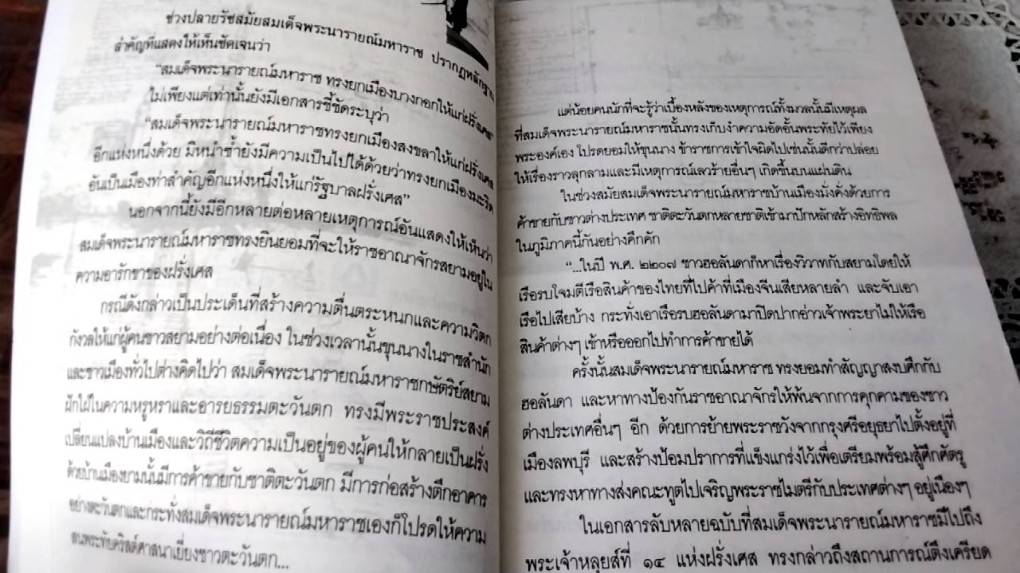 ช่วงปลายรัชสมัยสมเด็จพระนารายณ์มหาราช ปรากฏหลักฐาน
สำคัญที่แสดงให้เห็นชัดเจนว่า
“สมเด็จพระนารายณ์มหาราช ทรงยกเมืองบางกอกให้แก่ฝรั่งเศส”
ไม่เพียงแต่เท่านั้นยังมีเอกสารชี้ชัดระบุว่า
“สมเด็จพระนารายณ์มหาราชทรงยกเมืองสงขลาให้แก่ฝรั่งเศส
อีกแห่งหนึ่งด้วย มิหนำซ้ำยังมีความเป็นไปได้ด้วยว่าทรงยกเมืองมะริด
อันเป็นเมืองท่าสำคัญอีกแห่งหนึ่งให้แก่รัฐบาลฝรั่งเศส”
นอกจากนี้ยังมีอีกหลายต่อหลายเหตุการณ์อันแสดงให้เห็นว่า
สมเด็จพระนารายณ์มหาราชทรงยินยอมที่จะให้ราชอาณาจักรสยามอยู่ใน
ความอารักขาของฝรั่งเศส
กรณีดังกล่าวเป็นประเด็นที่สร้างความตื่นตระหนกและความวิตก
กังวลให้แก่ผู้คนชาวสยามอย่างต่อเนื่อง ในช่วงเวลานั้นขุนนางในราชสำนัก
และชาวเมืองทั่วไปต่างคิดไปว่า สมเด็จพระนารายณ์มหาราชกษัตริย์สยาม
ฝักใฝ่ในความหรูหราและอารยธรรมตะวันตก ทรงมีพระราชประสงค์
เปลี่ยนแปลงบ้านเมืองและวิถีชีวิตความเป็นอยู่ของผู้คนให้กลายเป็นฝรั่ง
ด้วยบ้านเมืองยามนั้นมีการค้าขายกับชาติตะวันตก มีการก่อสร้างตึกอาคาร
อย่างตะวันตกและกระทั่งสมเด็จพระนารายณ์มหาราชเองก็โปรดให้ความ
สนพระทัยคริสต์ศาสนาเยี่ยงชาวตะวันตก...
แต่น้อยคนนักที่จะรู้ว่าเบื้องหลังของเหตุการณ์ทั้งมวลนั้นมีเหตุผล
ที่สมเด็จพระนารายณ์มหาราชนั้นทรงเก็บงำความอัดอั้นพระทัยไว้เพียง
พระองค์เอง โปรดยอมให้ขุนนาง ข้าราชการเข้าใจผิดไปเช่นนั้นดีกว่าปล่อย
ให้เรื่องราวลุกลามและมีเหตุการณ์เลวร้ายอื่นๆ เกิดขึ้นบนแผ่นดิน
ในช่วงสมัยสมเด็จพระนารายณ์มหาราชบ้านเมืองมั่งคั่งด้วยการ
ค้าขายกับชาวต่างประเทศ ชาติตะวันตกหลายชาติเข้ามาปักหลักสร้างอิทธิพล
ในภูมิภาคนี้กันอย่างคึกคัก
“...ในปี พ.ศ. ๒๒๐๗ ชาวฮอลันดาก็หาเรื่องวิวาทกับสยามโดยให้
เรือรบโจมตีเรือสินค้าของไทยที่ไปค้าที่เมืองจีนเสียหลายลำ และจับเอา
เรือไปเสียบ้าง กระทั่งเอาเรือรบฮอลันดามาปิดปากอ่าวเจ้าพระยาไม่ให้เรือ
สินค้าต่างๆ เข้าหรือออกไปทำการค้าขายได้
ครั้งนั้นสมเด็จพระนารายณ์มหาราช ทรงยอมทำสัญญาสงบศึกกับ
ฮอลันดา และหาทางป้องกันราชอาณาจักรให้พ้นจากการคุกคามของชาว
ต่างประเทศอื่นๆ อีก ด้วยการย้ายพระราชวังจากกรุงศรีอยุธยาไปตั้งอยู่ที่
เมืองลพบุรี และสร้างป้อมปราการที่แข็งแกร่งไว้เพื่อเตรียมพร้อมสู้ศึกศัตรู
และทรงหาทางส่งคณะทูตไปเจริญพระราชไมตรีกับประเทศต่างๆ อยู่เนืองๆ
ในเอกสารลับหลายฉบับที่สมเด็จพระนารายณ์มหาราชมีไปถึง
พระเจ้าหลุยส์ที่ ๑๔ แห่งฝรั่งเศส ทรงกล่าวถึงสถานการณ์ตึงเครียด